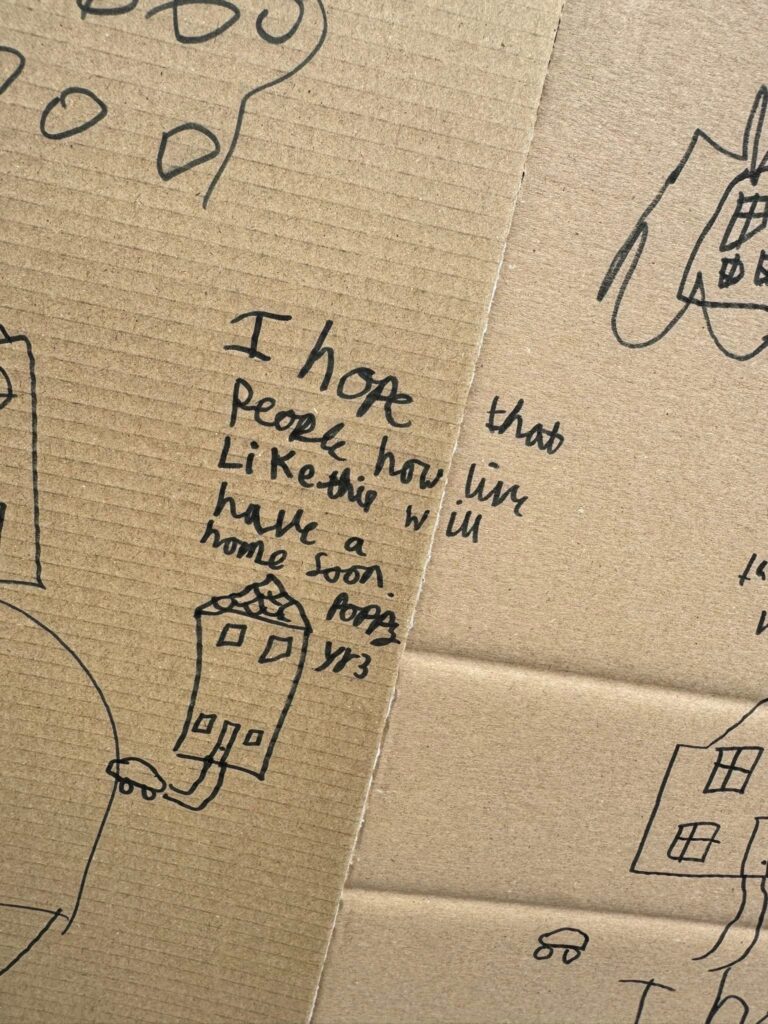 I hope that
People how live
Like this will
have a
home soon.
Poppy
yr3
I h